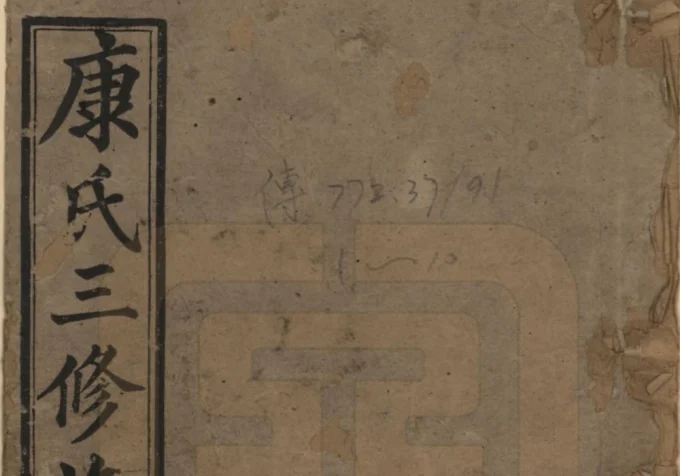 康氏三修
傳 772.37/91
1～10